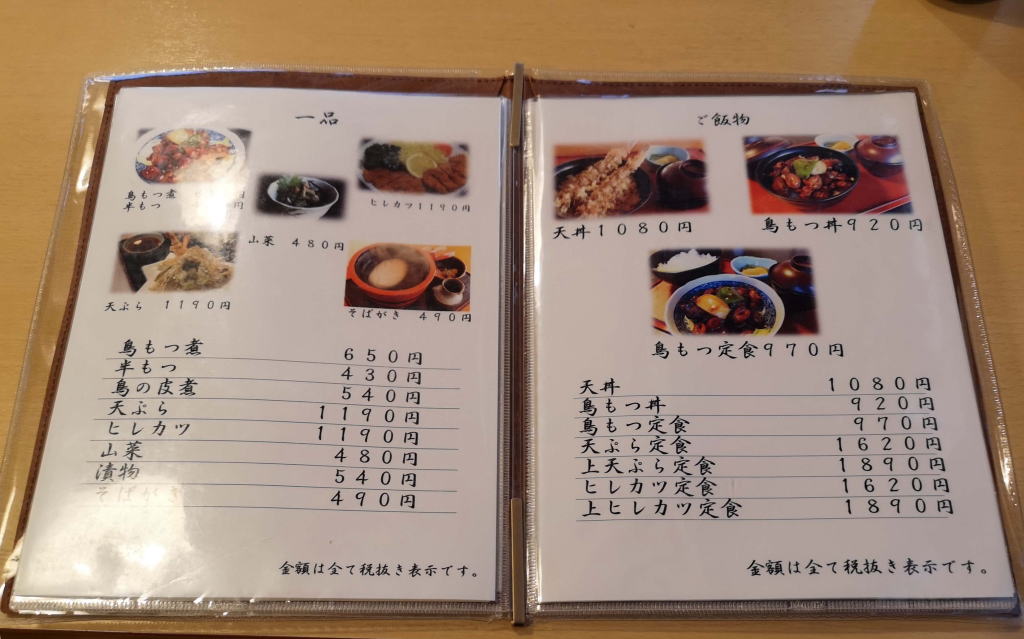 一品
鳥もつ煮 円
半もつ 円
ヒレカツ1190円
山菜 480円
天ぷら 1190円
そばがき 490円
鳥もつ煮 650円
半もつ 430円
鳥の皮煮 540円
天ぷら 1190円
ヒレカツ 1190円
山菜 480円
漬物 540円
そばがき 490円
金額は全て税抜き表示です。
ご飯物
天丼1080円
鳥もつ丼920円
鳥もつ定食970円
天丼 1080円
鳥もつ丼 920円
鳥もつ定食 970円
天ぷら定食 1620円
上天ぷら定食 1890円
ヒレカツ定食 1620円
上ヒレカツ定食 1890円
金額は全て税抜き表示です。